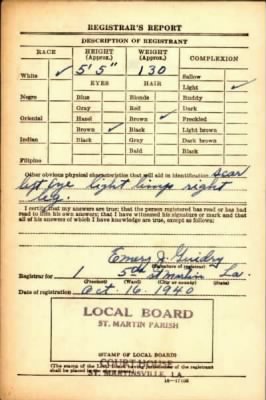 REGISTRAR'S REPORT
DESCRIPTION OF REGISTRANT
RACE HEIGHT (Approx.) WEIGHT (Approx.) COMPLEXION
5' 5" 130
White ✓ EYES HAIR Sallow
Light ✓
Negro Blue Blonde Ruddy
Gray Red Dark
Oriental Hazel Brown ✓ Freckled
Brown ✓ Black Light brown
Indian Black Gray Dark brown
Bald Black
Filipino
Other obvious physical characteristics that will aid in identification scar
left eye light limp right
leg.
I certify that my answers are true; that the person registered has read or has
had read to him his own answers; that I have witnessed his signature or mark and that
all of his answers of which I have knowledge are true, except as follows:
Emery J. Guidry
(Signature of registrar)
Registrar for 1 5th St Martin La.
(Precinct) (Ward) (City or county) (State)
Date of registration Oct. 16. 1940
LOCAL BOARD
ST. MARTIN PARISH
STAMP OF LOCAL BOARD
COURT HOUSE
(The stamp of the Local Board having jurisdiction of the registrant
shall be placed in the above space.)
ST. MARTINSVILLE, LA.